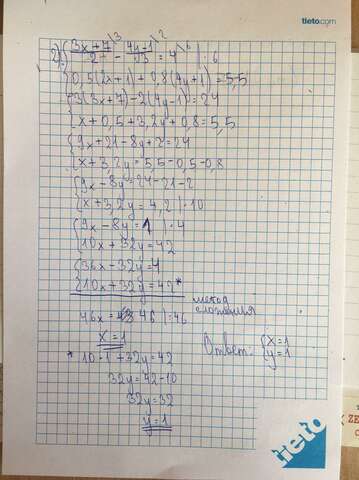 tieto.com
2) { (3x+7)/2 \3 - (4y-1)/3 \2 = 4 \6 | · 6
{ 0,5(2x+1) + 0,8(4y+1) = 5,5
{ 3(3x+7) - 2(4y-1) = 24
{ x + 0,5 + 3,2y + 0,8 = 5,5
{ 9x + 21 - 8y + 2 = 24
{ x + 3,2y = 5,5 - 0,5 - 0,8
{ 9x - 8y = 24 - 21 - 2
{ x + 3,2y = 4,2 | · 10
{ 9x - 8y = 1 | · 4
{ 10x + 32y = 42
{ 36x - 32y = 4
{ 10x + 32y = 42 *
метод
сложения
46x = 46 | : 46
x = 1
Ответ: { x = 1
{ y = 1
* 10 · 1 + 32y = 42
32y = 42 - 10
32y = 32
y = 1
tieto
ZE